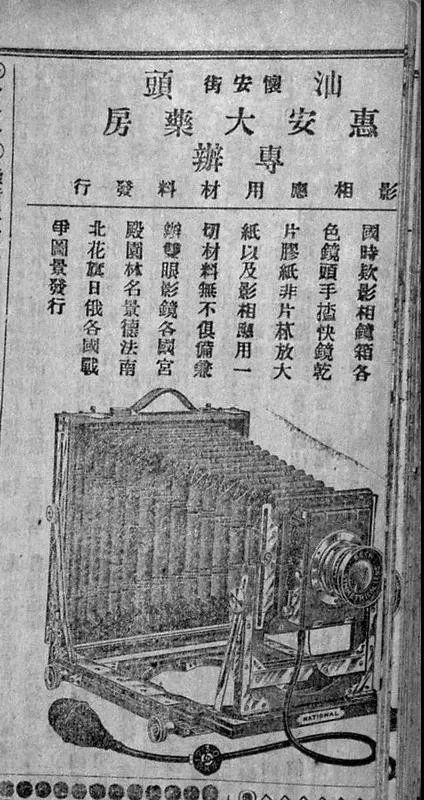 汕懷安街頭
惠安大藥房
專辦
影相應用材料發行
國時欵影相鏡箱各
色鏡頭手揸快鏡乾
片膠紙非片菻放大
紙以及影相應用一
切材料無不俱備兼
辦雙眼影鏡各國宮
殿園林名景德法南
北花旗日俄各國戰
爭圖景發行
NATIONAL